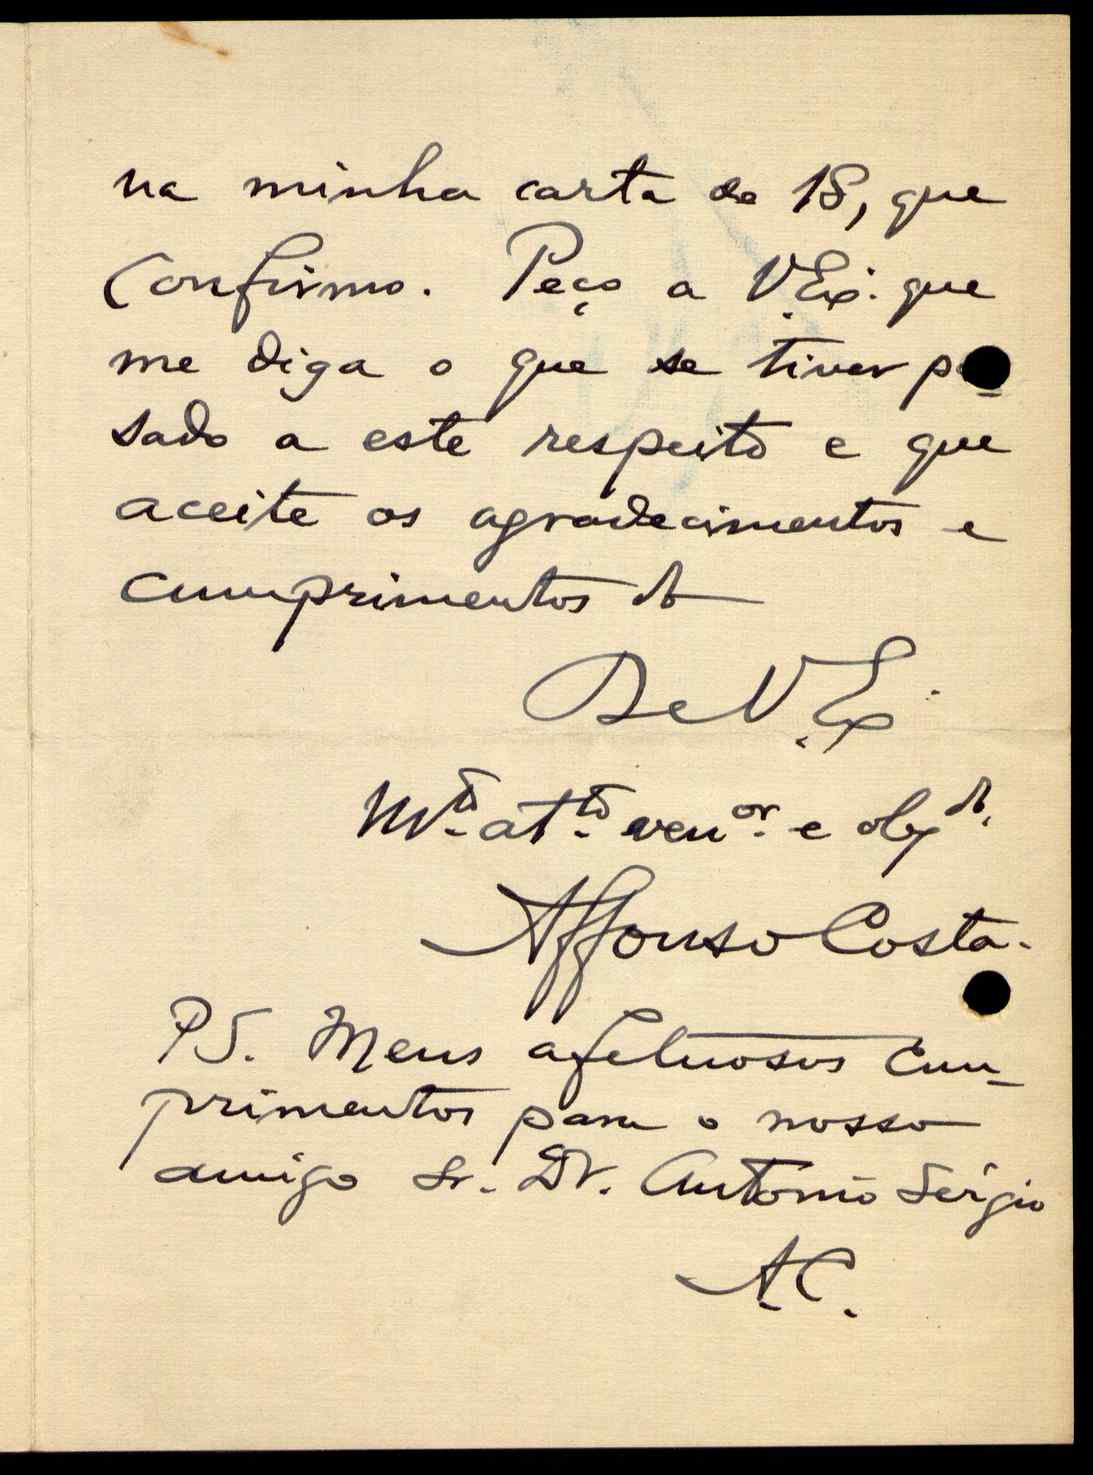 na minha carta de 18, que
confirmo. Peço a V. Exª. que
me diga o que se tiver pas-
sado a este respeito e que
aceite os agradecimentos e
cumprimentos do
De V. Exª.
Mto. atto. venor. e obgdo.
Affonso Costa.
PS. Meus afetuosos cum-
primentos para o nosso
amigo Sr. Dr. Antonio Sérgio
A.C.